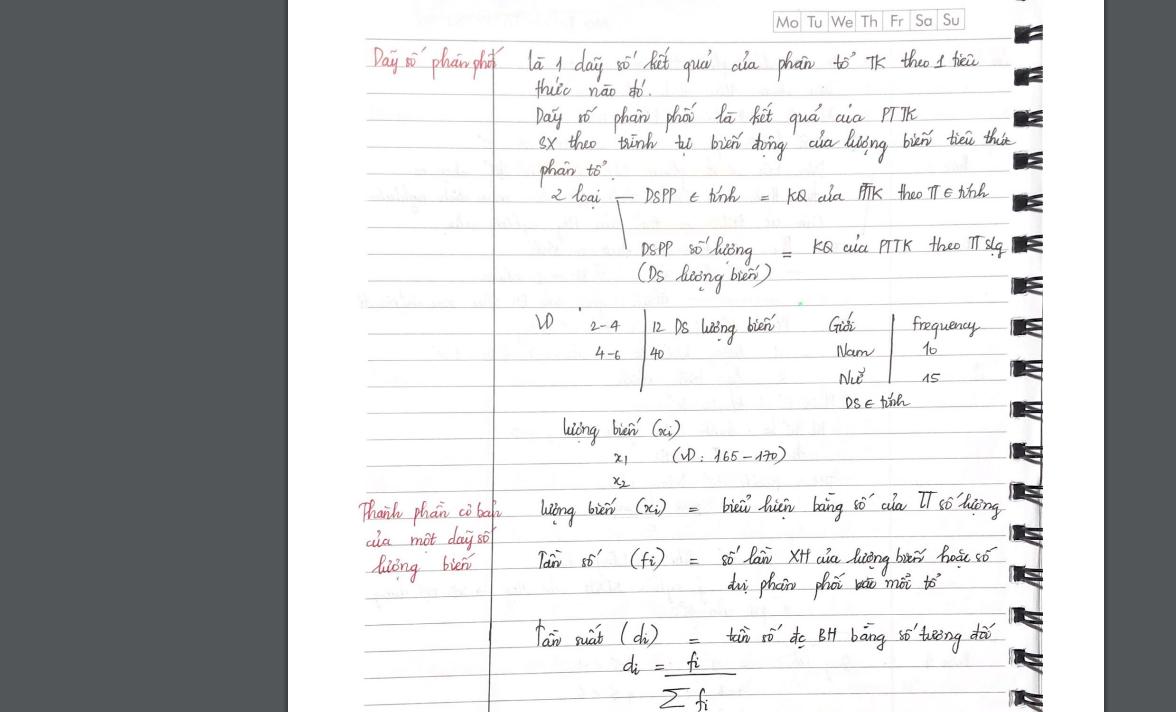 Mo Tu We Th Fr Sa Su
Dãy số phân phối
là 1 dãy số kết quả của phân tổ TK theo 1 tiêu
thức nào đó.
Dãy số phân phối là kết quả của PTTK
SX theo trình tự biến động của lượng biến tiêu thức
phân tổ.
2 loại — DSPP ∈ tính = KQ của PTTK theo TT ∈ tính
DSPP số lượng = KQ của PTTK theo TT slg
(DS lượng biến)
VD 2-4 | 12 DS lượng biến
4-6 | 40
Giới | frequency
Nam | 10
Nữ | 15
DS ∈ tính
lượng biến (xi)
x1 (VD: 165-170)
x2
Thành phần cơ bản
của một dãy số
lượng biến
lượng biến (xi) = biểu hiện bằng số của TT số lượng
Tần số (fi) = số lần XH của lượng biến hoặc số
đvị phân phối vào mỗi tổ
Tần suất (di) = tần số đc BH bằng số tương đối
di = fi
Σ fi